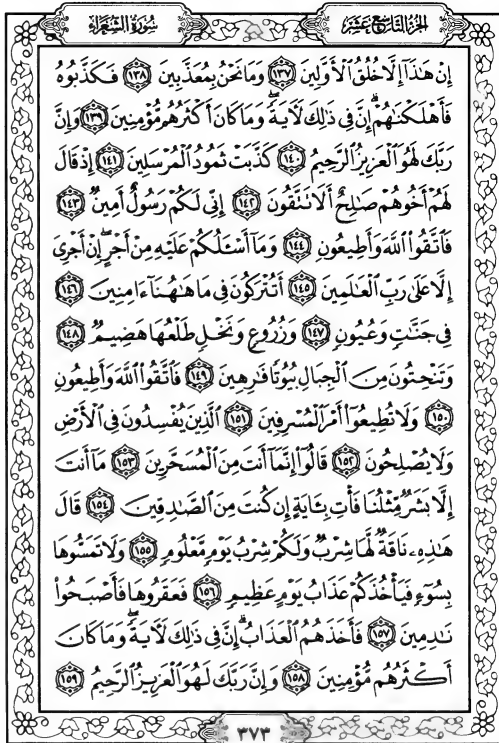 سُورَةُ الشُّعَرَاءِ
الجُزْءُ التَّاسِعَ عَشَرَ
إِنْ هَٰذَآ إِلَّا خُلُقُ ٱلْأَوَّلِينَ ١٣٧ وَمَا نَحْنُ بِمُعَذَّبِينَ ١٣٨ فَكَذَّبُوهُ
فَأَهْلَكْنَٰهُمْ ۗ إِنَّ فِى ذَٰلِكَ لَءَايَةً ۖ وَمَا كَانَ أَكْثَرُهُم مُّؤْمِنِينَ ١٣٩ وَإِنَّ
رَبَّكَ لَهُوَ ٱلْعَزِيزُ ٱلرَّحِيمُ ١٤٠ كَذَّبَتْ ثَمُودُ ٱلْمُرْسَلِينَ ١٤١ إِذْ قَالَ
لَهُمْ أَخُوهُمْ صَٰلِحٌ أَلَا تَتَّقُونَ ١٤٢ إِنِّى لَكُمْ رَسُولٌ أَمِينٌ ١٤٣
فَٱتَّقُوا۟ ٱللَّهَ وَأَطِيعُونِ ١٤٤ وَمَآ أَسْـَٔلُكُمْ عَلَيْهِ مِنْ أَجْرٍ ۖ إِنْ أَجْرِىَ
إِلَّا عَلَىٰ رَبِّ ٱلْعَٰلَمِينَ ١٤٥ أَتُتْرَكُونَ فِى مَا هَٰهُنَآ ءَامِنِينَ ١٤٦
فِى جَنَّٰتٍ وَعُيُونٍ ١٤٧ وَزُرُوعٍ وَنَخْلٍ طَلْعُهَا هَضِيمٌ ١٤٨
وَتَنْحِتُونَ مِنَ ٱلْجِبَالِ بُيُوتًا فَٰرِهِينَ ١٤٩ فَٱتَّقُوا۟ ٱللَّهَ وَأَطِيعُونِ
١٥٠ وَلَا تُطِيعُوٓا۟ أَمْرَ ٱلْمُسْرِفِينَ ١٥١ ٱلَّذِينَ يُفْسِدُونَ فِى ٱلْأَرْضِ
وَلَا يُصْلِحُونَ ١٥٢ قَالُوٓا۟ إِنَّمَآ أَنتَ مِنَ ٱلْمُسَحَّرِينَ ١٥٣ مَآ أَنتَ
إِلَّا بَشَرٌ مِّثْلُنَا فَأْتِ بِـَٔايَةٍ إِن كُنتَ مِنَ ٱلصَّٰدِقِينَ ١٥٤ قَالَ
هَٰذِهِۦ نَاقَةٌ لَّهَا شِرْبٌ وَلَكُمْ شِرْبُ يَوْمٍ مَّعْلُومٍ ١٥٥ وَلَا تَمَسُّوهَا
بِسُوٓءٍ فَيَأْخُذَكُمْ عَذَابُ يَوْمٍ عَظِيمٍ ١٥٦ فَعَقَرُوهَا فَأَصْبَحُوا۟
نَٰدِمِينَ ١٥٧ فَأَخَذَهُمُ ٱلْعَذَابُ ۗ إِنَّ فِى ذَٰلِكَ لَءَايَةً ۖ وَمَا كَانَ
أَكْثَرُهُم مُّؤْمِنِينَ ١٥٨ وَإِنَّ رَبَّكَ لَهُوَ ٱلْعَزِيزُ ٱلرَّحِيمُ ١٥٩
٣٧٣